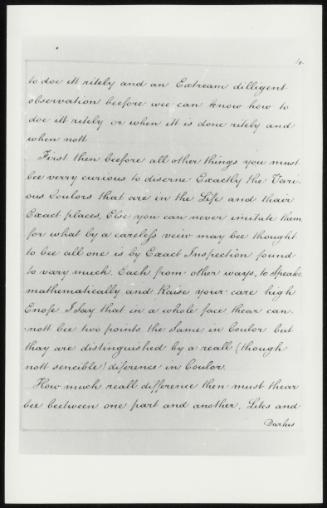 4.
to doe itt ritely and an Extream dilligent
observation beefore wee can know how to
doe itt ritely or when itt is done ritely and
when nott
First then beefore all other things you must
bee verry curious to discerne Exactly the Vari
ous Coulors that are in the Life and theair
Exact places, Else you can never imitate them
for what by a careless veiw may bee thought
to bee all one is by Exact Inspection found
to vary much Each from other ways, to speake
mathematically and Raise your care high
Enofe I say that in a whole face thear can
nott bee two points the Same in Coulor but
thay are distinguished by a reall (though
nott sencible) diference in Coulor.
How much reall difference then must thear
bee beetween one part and another, Lites and
Darkes